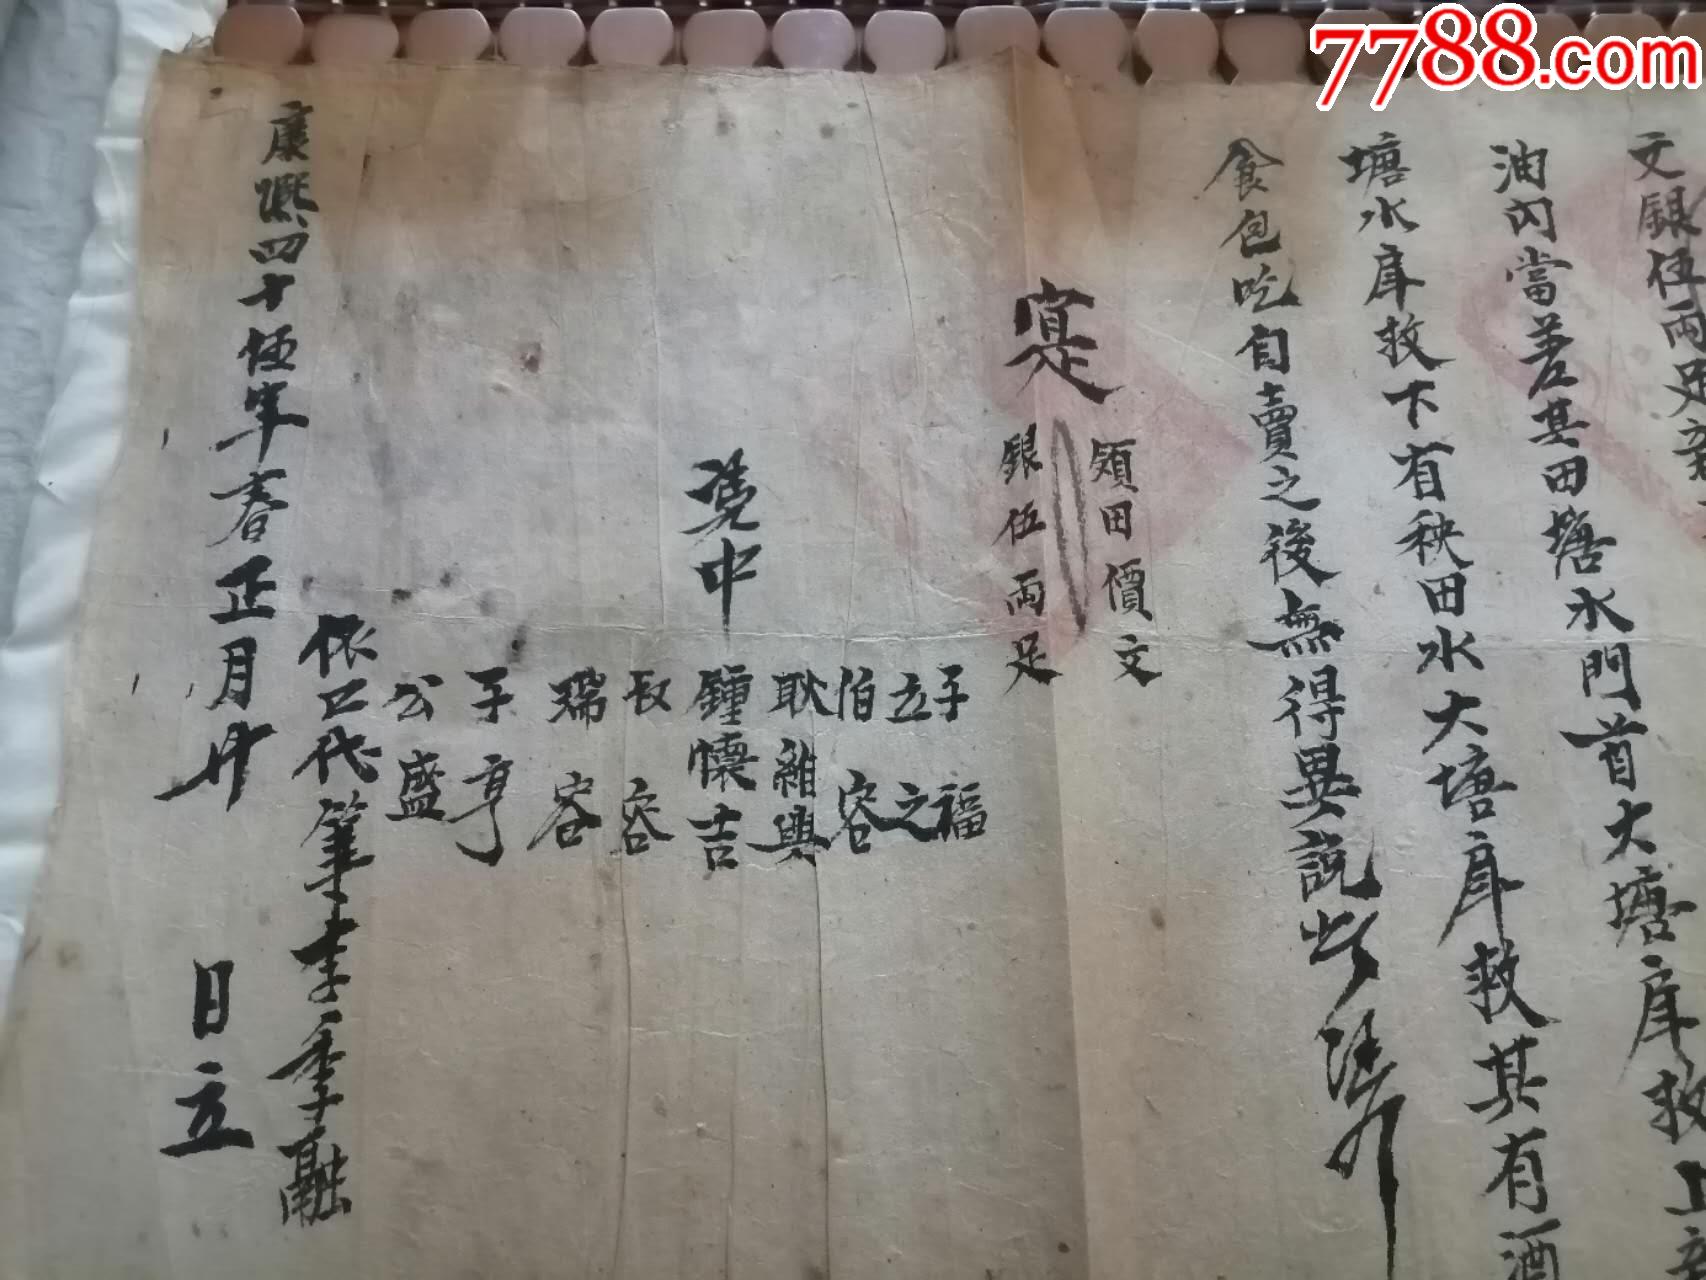 7788.com
文銀伍兩足
油內當差其田塘水門首大塘庠救上
塘水庠救下有秧田水大塘庠救其有酒
食包吃自賣之後無得異説此
寔
領田價文
銀伍兩足
凴中
子福
立之
伯容
耿維興
鍾懷吉
長容
瑞容
子亨
公盛
依口代筆李季融
康熈四十伍年春正月廿日立